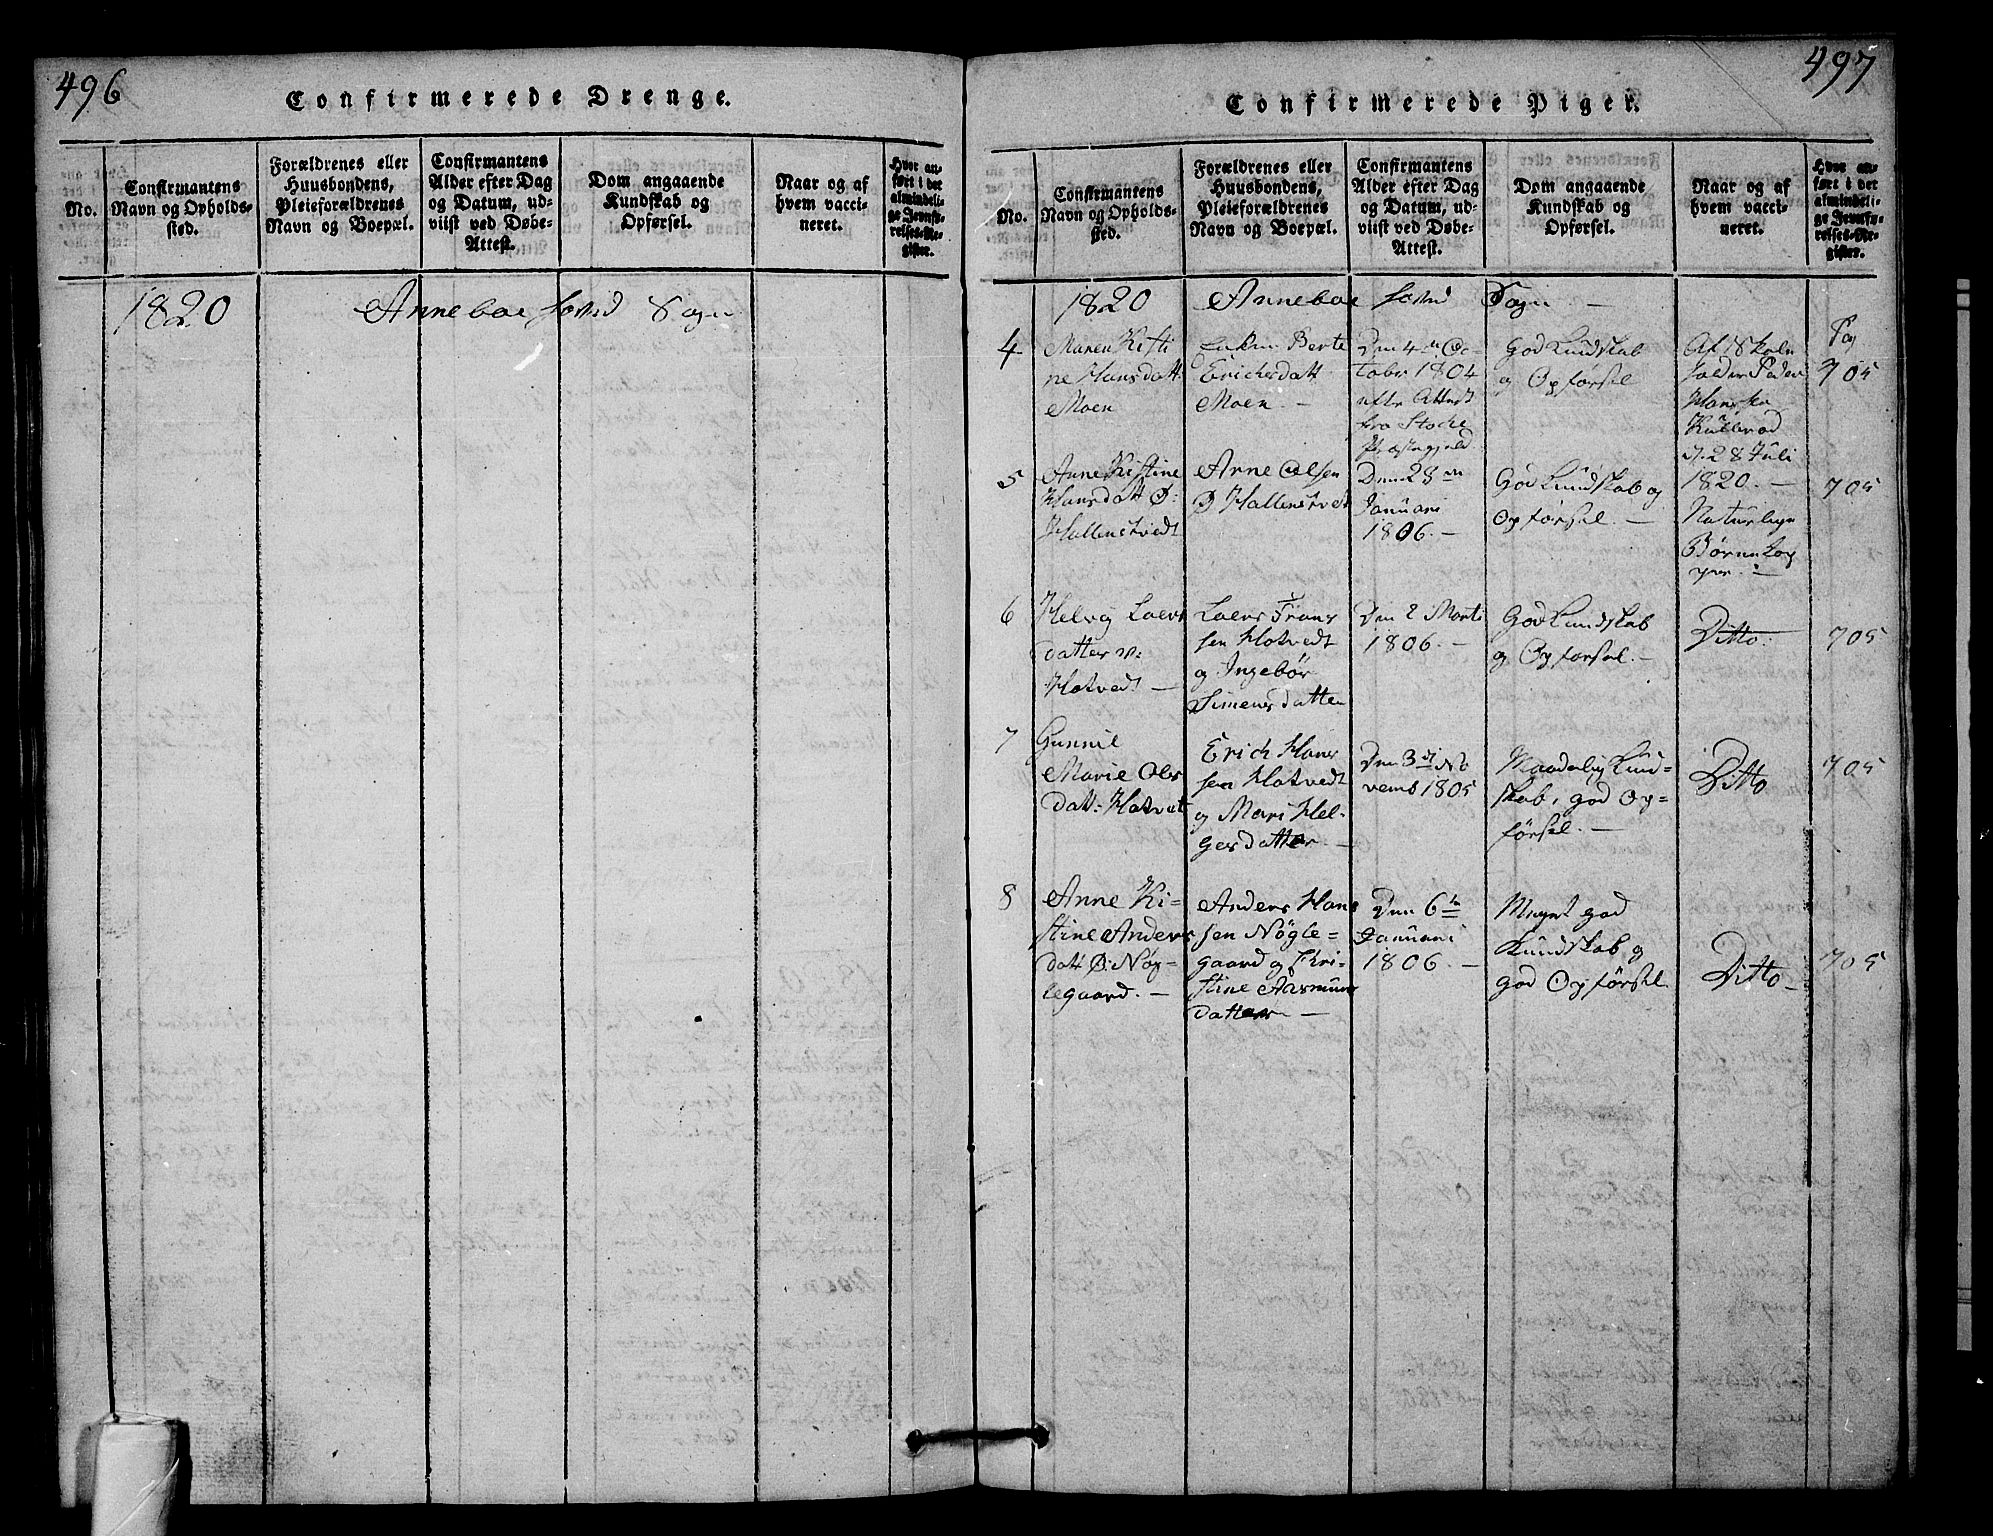 496
Confirmerede Drenge.
No.
Confirmantens
Navn og Opholds-
sted.
Forældrenes eller
Huusbondens,
Pleieforældrenes
Navn og Boepæl.
Confirmantens
Alder efter Dag
og Datum, ud-
viist ved Døbe-
Attest.
Dom angaaende
Kundskab og
Opførsel.
Naar og af
hvem vacci-
neret.
Hvor an-
ført i det
almindeli-
ge Jevnfø-
relses-Re-
gister.
1820 Anneboe Sogn
497
Confirmerede Piger.
No.
Confirmantens
Navn og Opholds-
sted.
Forældrenes eller
Huusbondens,
Pleieforældrenes
Navn og Boepæl.
Confirmantens
Alder efter Dag
og Datum, ud-
viist ved Døbe-
Attest.
Dom angaaende
Kundskab og
Opførsel.
Naar og af
hvem vacci-
neret.
Hvor an-
ført i det
almindeli-
ge Jevnfø-
relses-Re-
gister.
1820 Anneboe Sogn –
Pag
4
Maren Kisti
ne Hansdatt
Moen
Enken Berte
Erichsdatt
Moen. –
Den 4de Oc-
tobr 1804
efter Attest
fra Stocke
Præstegjeld
God Kundskab
og Opførsel
Af Skole
holder Peder
Hansen
d. 28 Juli
1820. –
705
5
Anne Kistine
Hansdatt Ø:
Hallenstvedt
Arne Olsen
Ø Hallenstvedt
Den 28de
Januari
1806. –
God Kundskab og
Opførsel. –
Naturlige
Børnekop
per. –
705
6
Helvig Laers
datter v:
Hotvedt –
Laers Frans
sen Hotvedt
og Ingebor
Simensdatter
Den 2 Marti
1806. –
God Kundskab
og Opførsel. –
Ditto.
705
7
Gunnil
Marie Ols
dat: Hotvet
Erich Hans
sen Hotvedt
og Mari Hel-
gesdatter. –
Den 3di No
vemb 1805
Maadelig Kund-
skab, god Op-
førsel. –
Ditto
705
8
Anne Ki-
stine Anders
datt Ø: Nøg-
legaard. –
Anders Hans
sen Nøgle-
gaard og Kri-
stine Aasmuns
datter –
Den 6te
Januari
1806. –
Meget god
Kundskab og
god Opførsel.
Ditto –
705